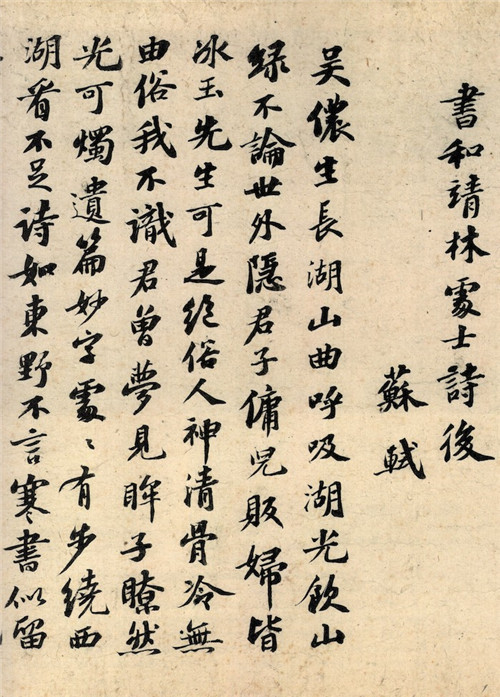 書和靖林處士詩後
蘇軾
吳儂生長湖山曲呼吸湖光飲山
綠不論世外隱君子傭兒販婦皆
冰玉先生可是絕俗人神清骨冷無
由俗我不識君曾夢見眸子瞭然
光可燭遺篇妙字處〻有步繞西
湖看不足詩如東野不言寒書似留